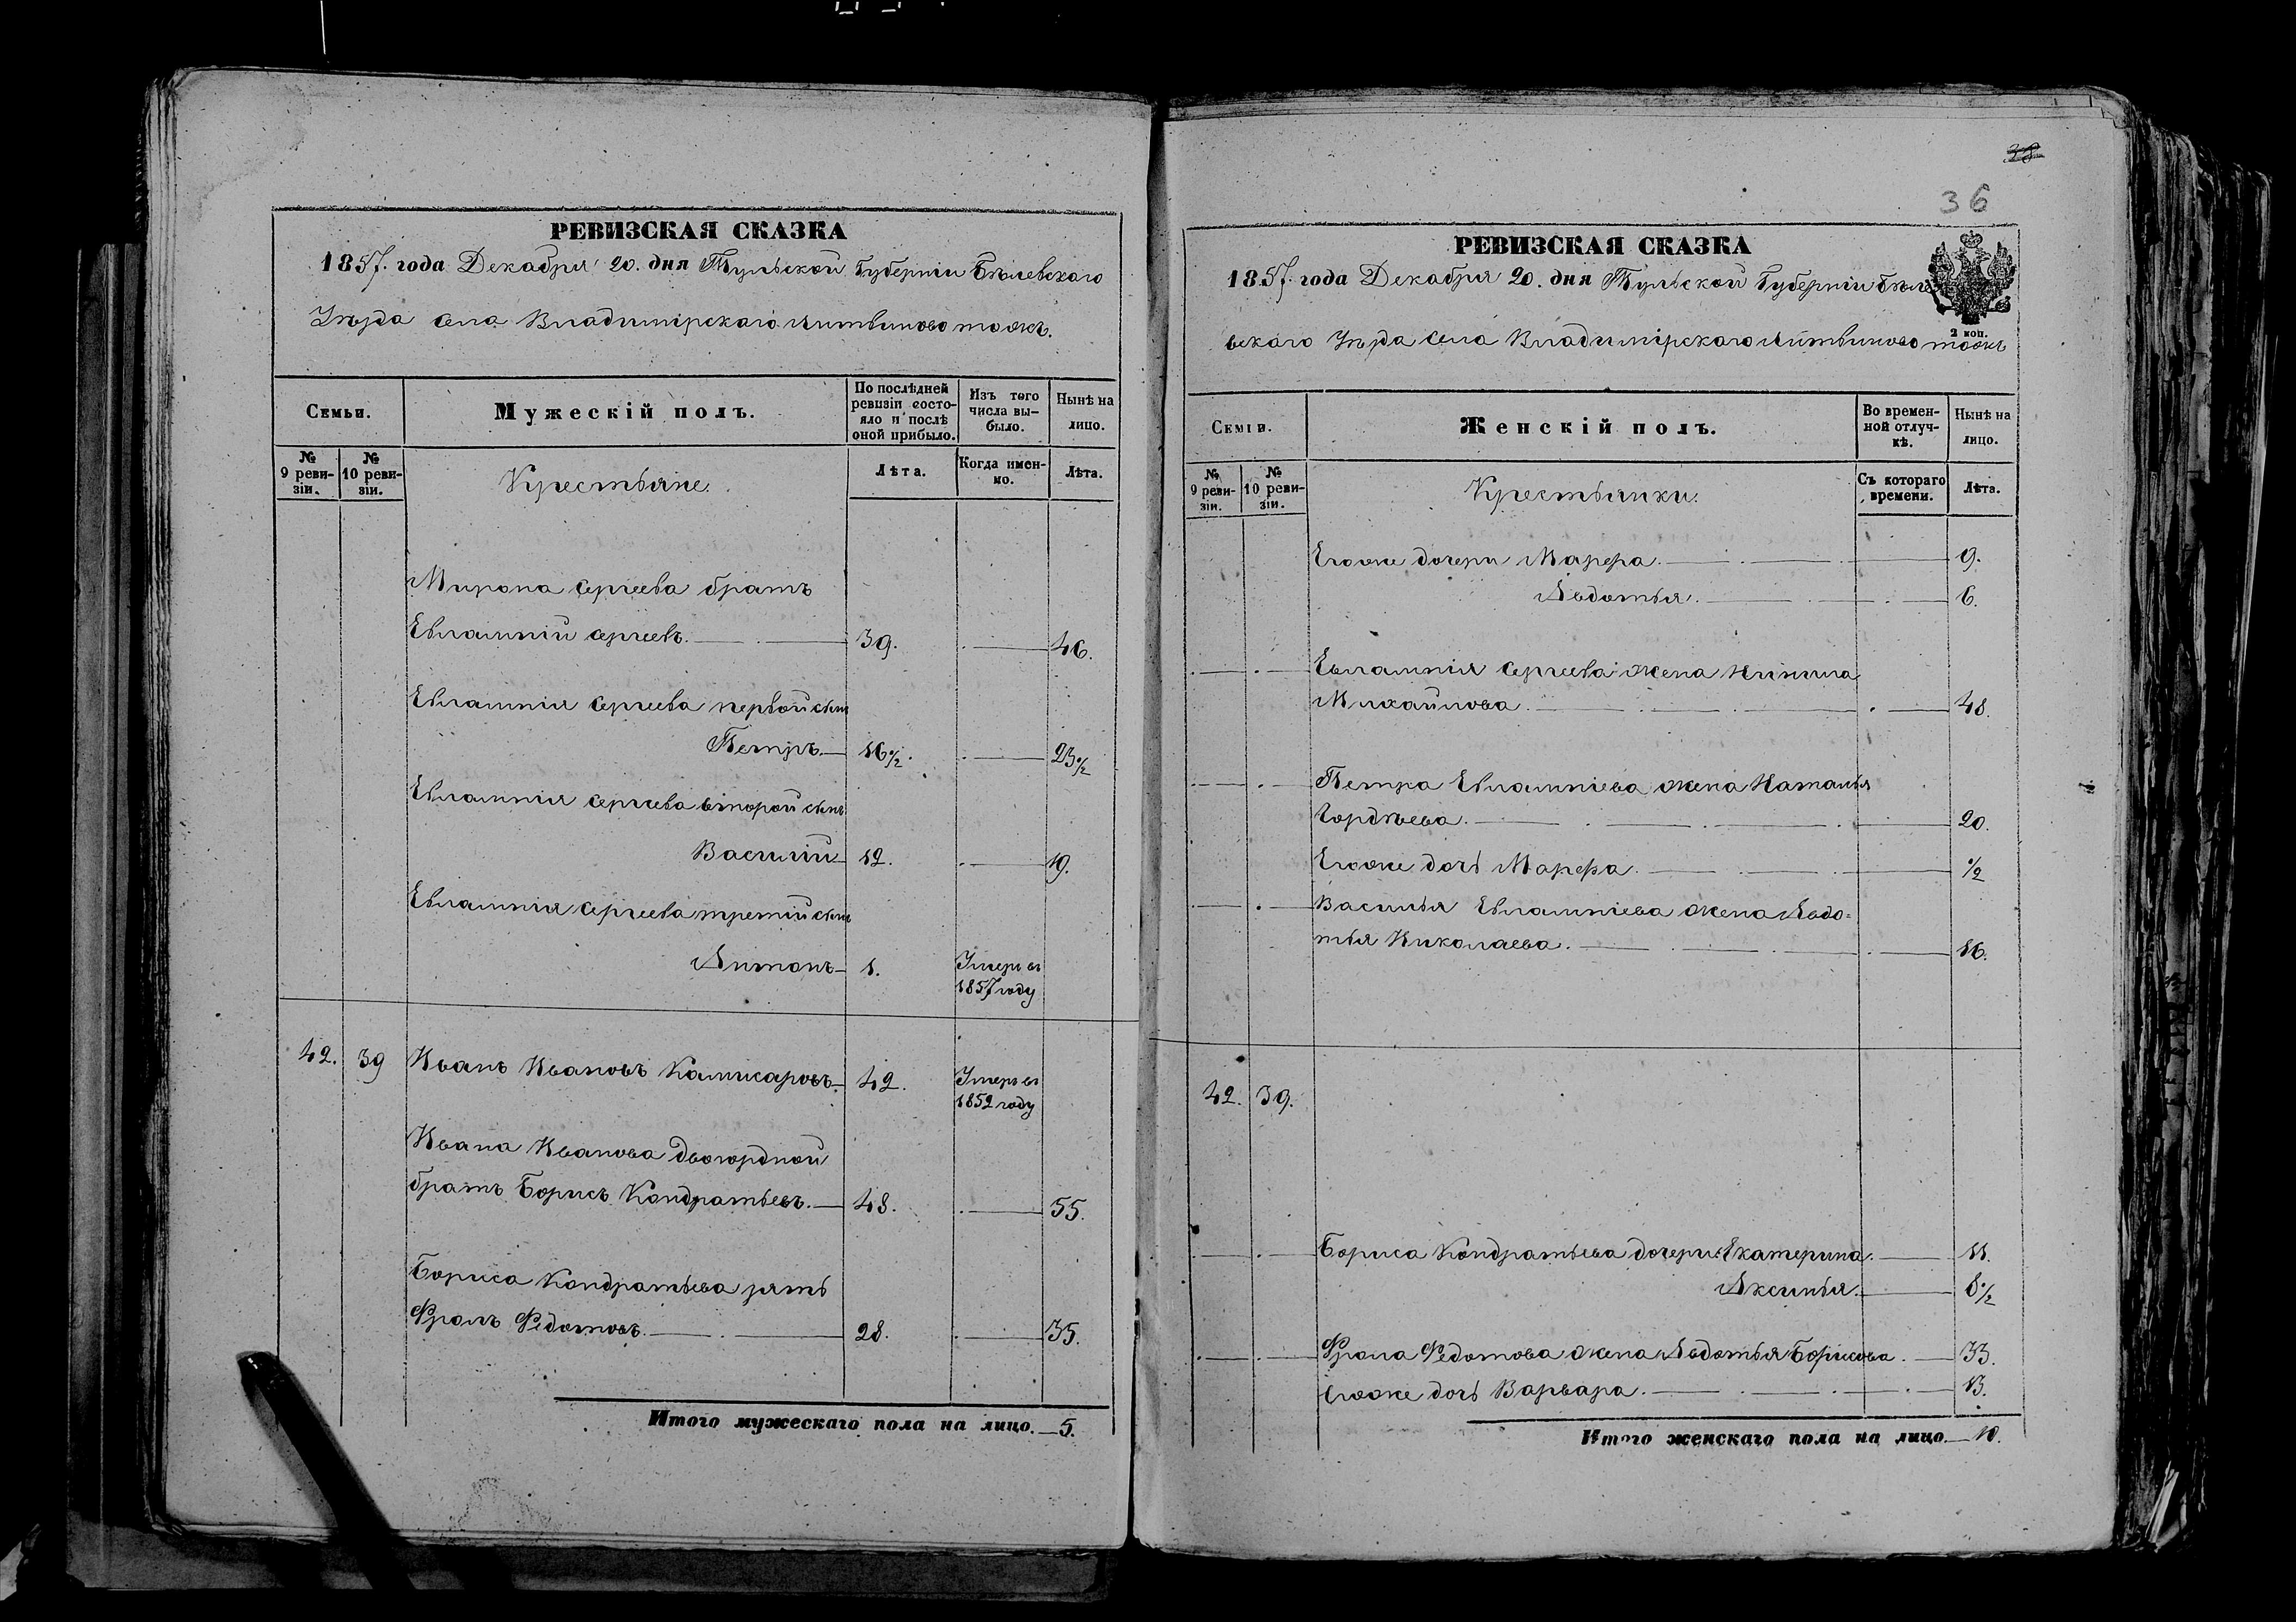 РЕВИЗСКАЯ СКАЗКА
1857. года Декабря 20. дня Тульской Губерніи Бѣлевскаго
Уѣзда села Владимірскаго Литвиново тожъ.
Семьи.
Мужескій полъ.
По послѣдней ревизіи состояло и послѣ оной прибыло.
Изъ того числа выбыло.
Нынѣ на лицо.
№ 9 ревизіи.
№ 10 ревизіи.
Крестьяне.
Лѣта.
Когда именно.
Лѣта.
Мирона Сергеева братъ
Евлампій Сергеевъ. 39. 46.
Евлампія Сергеева первой сынъ
Петръ. 16½. 23½
Евлампія Сергеева второй сынъ
Василій 12. 19.
Евлампія Сергеева третій сынъ
Антонъ 1. Умеръ въ
1857 году
42. 39 Иванъ Ивановъ Камисаровъ. 42. Умеръ въ
1852 году
Ивана Иванова двоюрдной
братъ Борисъ Кондратьевъ. 48. 55.
Бориса Кондратьева зять
Фролъ Федотовъ. 28. 35.
Итого мужескаго пола на лицо. 5.
38
36
РЕВИЗСКАЯ СКАЗКА
1857. года Декабря 20. дня Тульской Губерніи Бѣле
2 коп.
вскаго Уѣзда села Владимірскаго Литвиново тожъ
Семьи.
Женскій полъ.
Во временной отлучкѣ.
Нынѣ на лицо.
№ 9 ревизіи.
№ 10 ревизіи.
Крестьянки.
Съ котораго времени.
Лѣта.
Егоже дочери Марфа. 9.
Авдотья. 6.
Евлампія Сергеева жена
Михайлова. 48.
Петра Евлампіева жена Наталья
Гордѣева. 20.
Егоже дочь Марфа. ½
Василья Евлампіева жена Авдо=
тья Николаева. 16.
42. 39.
Бориса Кондратьева дочери: Екатерина. 11.
Аксинья. 8½
Фрола Федотова жена Авдотья Борисова. 33.
Егоже дочь Варвара. 13.
Итого женскаго пола на лицо. 10.